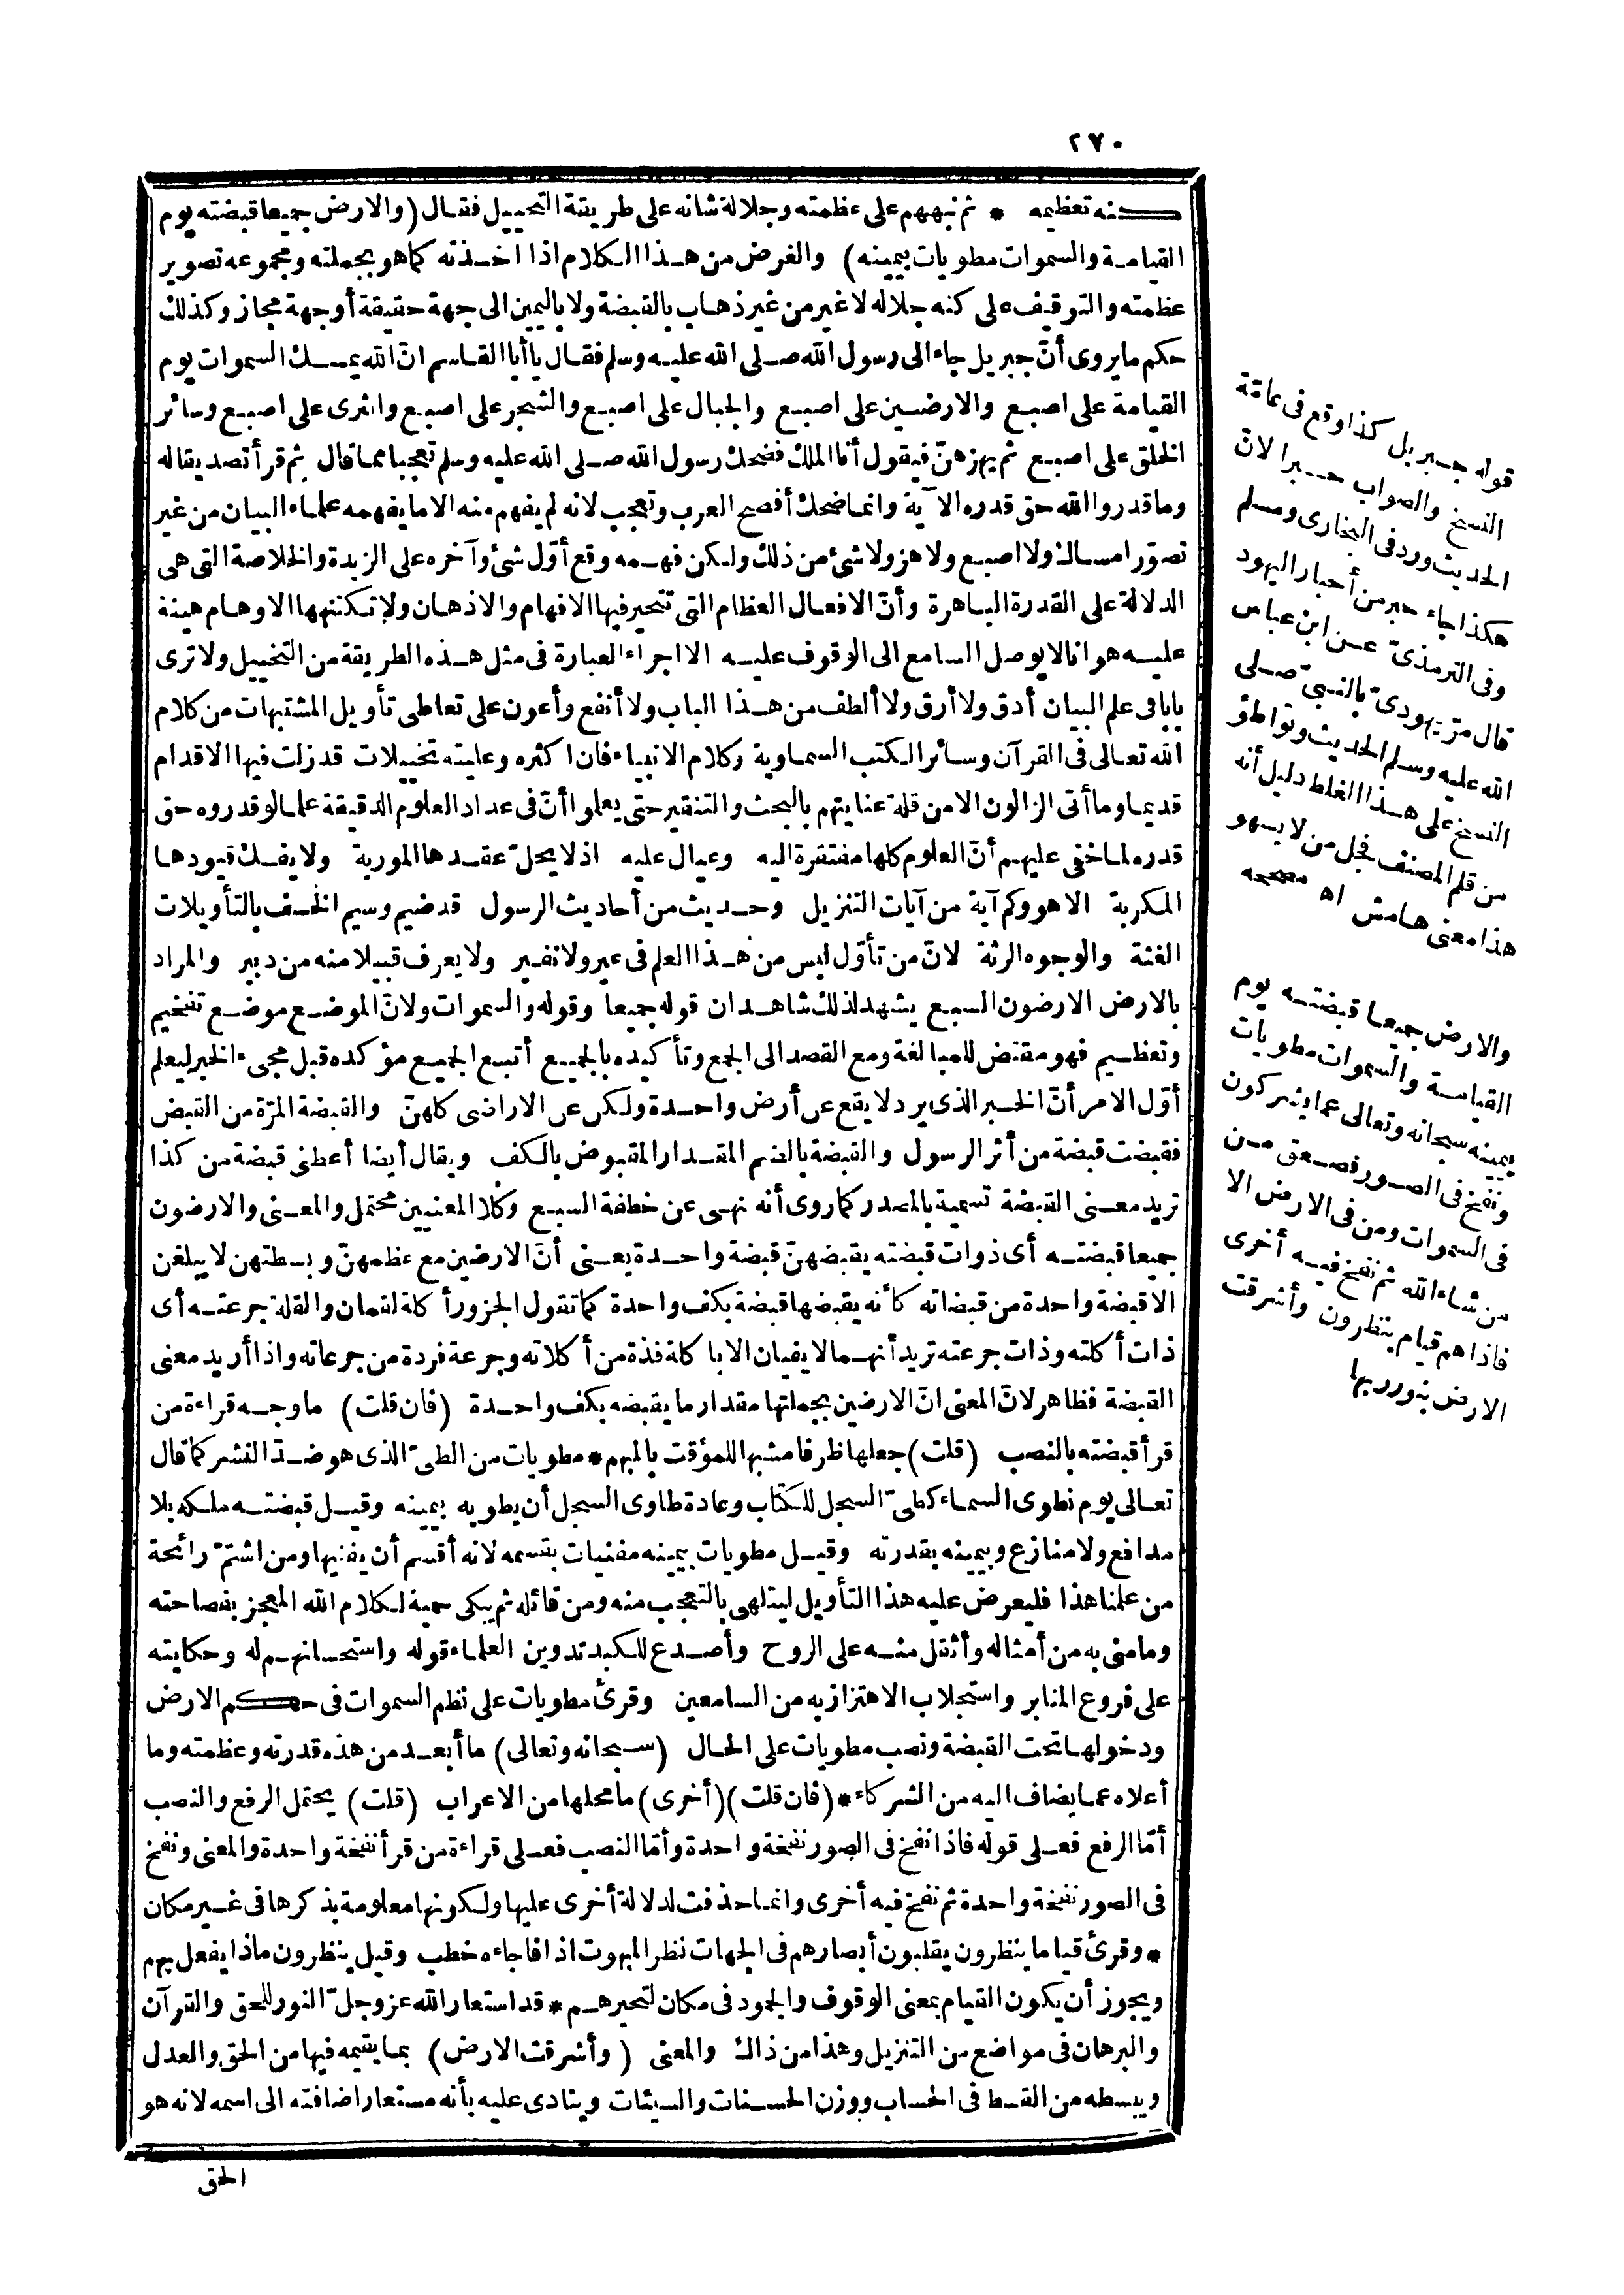 ٢٧٠
كنه تعظيمه * ثم نبههم على عظمته وجلالة شانه على طريقة التخييل فقال (والارض جميعا قبضته يوم
القيامة والسموات مطويات بيمينه) والغرض من هذا الكلام اذا اخذته كما هو بجملته ومجموعه تصوير
عظمته والتوقيف على كنه جلاله لا غير من غير ذهاب بالقبضة ولا باليمين الى جهة حقيقة أو جهة مجاز وكذلك
حكم ما يروى أنّ جبريل جاء الى رسول الله صلى الله عليه وسلم فقال يا أبا القاسم انّ الله يمسك السموات يوم
القيامة على اصبع والارضين على اصبع والجبال على اصبع والشجر على اصبع والثرى على اصبع وسائر
الخلق على اصبع ثم يهزهنّ فيقول أنا الملك فضحك رسول الله صلى الله عليه وسلم تعجبا مما قال ثم قرأ تصديقا له
وما قدروا الله حق قدره الآية وانما ضحك أفصح العرب وتعجب لانه لم يفهم منه الا ما يفهمه علماء البيان من غير
تصوّر امساك ولا اصبع ولا هز ولا شئ من ذلك ولكن فهمه وقع أوّل شئ وآخره على الزبدة والخلاصة التى هى
الدلالة على القدرة الباهرة وأنّ الافعال العظام التى تتحير فيها الافهام والاذهان ولا تكتنهها الاوهام هينة
عليه هوانا لا يوصل السامع الى الوقوف عليه الا اجراء العبارة فى مثل هذه الطريقة من التخييل ولا ترى
بابا فى علم البيان أدق ولا أرق ولا ألطف من هذا الباب ولا أنفع وأعون على تعاطى تأويل المشتبهات من كلام
الله تعالى فى القرآن وسائر الكتب السماوية وكلام الانبياء فان اكثره وعليته تخييلات قد زلت فيها الاقدام
قديما وما أتى الزالون الا من قلة عنايتهم بالبحث والتنقير حتى يعلموا أنّ فى عداد العلوم الدقيقة علما لو قدروه حق
قدره لما خفى عليهم أنّ العلوم كلها مفتقرة اليه وعيال عليه اذ لا يحلّ عقدها الموربة ولا يفك قيودها
المكربة الا هو وكم آية من آيات التنزيل وحديث من أحاديث الرسول قد ضيم وسيم الخسف بالتأويلات
الغثة والوجوه الرثة لانّ من تأوّل ليس من هذا العلم فى عير ولا نفير ولا يعرف قبيلا منه من دبير والمراد
بالارض الارضون السبع يشهد لذلك شاهدان قوله جميعا وقوله والسموات ولانّ الموضع موضع تفخيم
وتعظيم فهو مقتض للمبالغة ومع القصد الى الجمع وتأكيده بالجميع أتبع الجميع مؤكده قبل مجىء الخبر ليعلم
أوّل الامر أنّ الخبر الذى يرد لا يقع عن أرض واحدة ولكن عن الاراضى كلهنّ والقبضة المرّة من القبض
فقبضت قبضة من أثر الرسول والقبضة بالضم المقدار المقبوض بالكف ويقال أيضا أعطنى قبضة من كذا
تريد معنى القبضة تسمية بالمصدر كما روى أنه نهى عن خطفة السبع وكلا المعنيين محتمل والمعنى والارضون
جميعا قبضته أى ذوات قبضته يقبضهنّ قبضة واحدة يعنى أنّ الارضين مع عظمهنّ وبسطتهن لا يبلغن
الا قبضة واحدة من قبضاته كأنه يقبضها قبضة بكف واحدة كما تقول الجزور أكلة لقمان والقلة جرعته أى
ذات أكلته وذات جرعته تريد أنهما لا يفيان الا باكلة فذة من أكلاته وجرعة فردة من جرعاته واذا أريد معنى
القبضة فظاهر لانّ المعنى انّ الارضين بجملتها مقدار ما يقبضه بكف واحدة (فان قلت) ما وجه قراءة من
قرأ قبضته بالنصب (قلت) جعلها ظرفا مشبها للمؤقت بالمبهم * مطويات من الطىّ الذى هو ضدّ النشر كما قال
تعالى يوم نطوى السماء كطىّ السجل للكتاب وعادة طاوى السجل أن يطويه بيمينه وقيل قبضته ملكه بلا
مدافع ولا منازع وبيمينه بقدرته وقيل مطويات بيمينه مفنيات بقسمه لانه أقسم أن يفنيها ومن اشتمّ رائحة
من علمنا هذا فليعرض عليه هذا التأويل ليتلهى بالتعجب منه ومن قائله ثم يبكى حمية لكلام الله المعجز بفصاحته
وما منى به من أمثاله وأثقل منه على الروح وأصدع للكبد تدوين العلماء قوله واستحسانهم له وحكايته
على فروع المنابر واستجلاب الاهتزاز به من السامعين وقرئ مطويات على نظم السموات فى حكم الارض
ودخولها تحت القبضة ونصب مطويات على الحال (سبحانه وتعالى) ما أبعد من هذه قدرته وعظمته وما
أعلاه عما يضاف اليه من الشركاء * (فان قلت) (أخرى) ما محلها من الاعراب (قلت) يحتمل الرفع والنصب
أمّا الرفع فعلى قوله فاذا نفخ فى الصور نفخة واحدة وأمّا النصب فعلى قراءة من قرأ نفخة واحدة والمعنى ونفخ
فى الصور نفخة واحدة ثم نفخ فيه أخرى وانما حذفت لدلالة أخرى عليها ولكونها معلومة بذكرها فى غير مكان
* وقرئ قياما ينظرون يقلبون أبصارهم فى الجهات نظر المبهوت اذا فاجاءه خطب وقيل ينظرون ماذا يفعل بهم
ويجوز أن يكون القيام بمعنى الوقوف والجمود فى مكان لتحيرهم * قد استعار الله عز وجلّ النور للحق والقرآن
والبرهان فى مواضع من التنزيل وهذا من ذاك والمعنى (وأشرقت الارض) بما يقيمه فيها من الحق والعدل
ويبسطه من القسط فى الحساب ووزن الحسنات والسيئات وينادى عليه بأنه مستعار اضافته الى اسمه لانه هو
الحق
قوله جبريل كذا وقع فى عامّة
النسخ والصواب حبرا لانّ
الحديث ورد فى البخارى ومسلم
هكذا جاء حبر من أحبار اليهود
وفى الترمذىّ عن ابن عباس
قال مرّ يهودىّ بالنبىّ صلى
الله عليه وسلم الحديث وتواطؤ
النسخ على هذا الغلط دليل أنه
من قلم المصنف فجل من لا يسهو
هذا معنى هامش اه مصححه
والارض جميعا قبضته يوم
القيامة والسموات مطويات
بيمينه سبحانه وتعالى عما يشركون
ونفخ فى الصور فصعق من
فى السموات ومن فى الارض الا
من شاء الله ثم نفخ فيه أخرى
فاذا هم قيام ينظرون وأشرقت
الارض بنور ربها